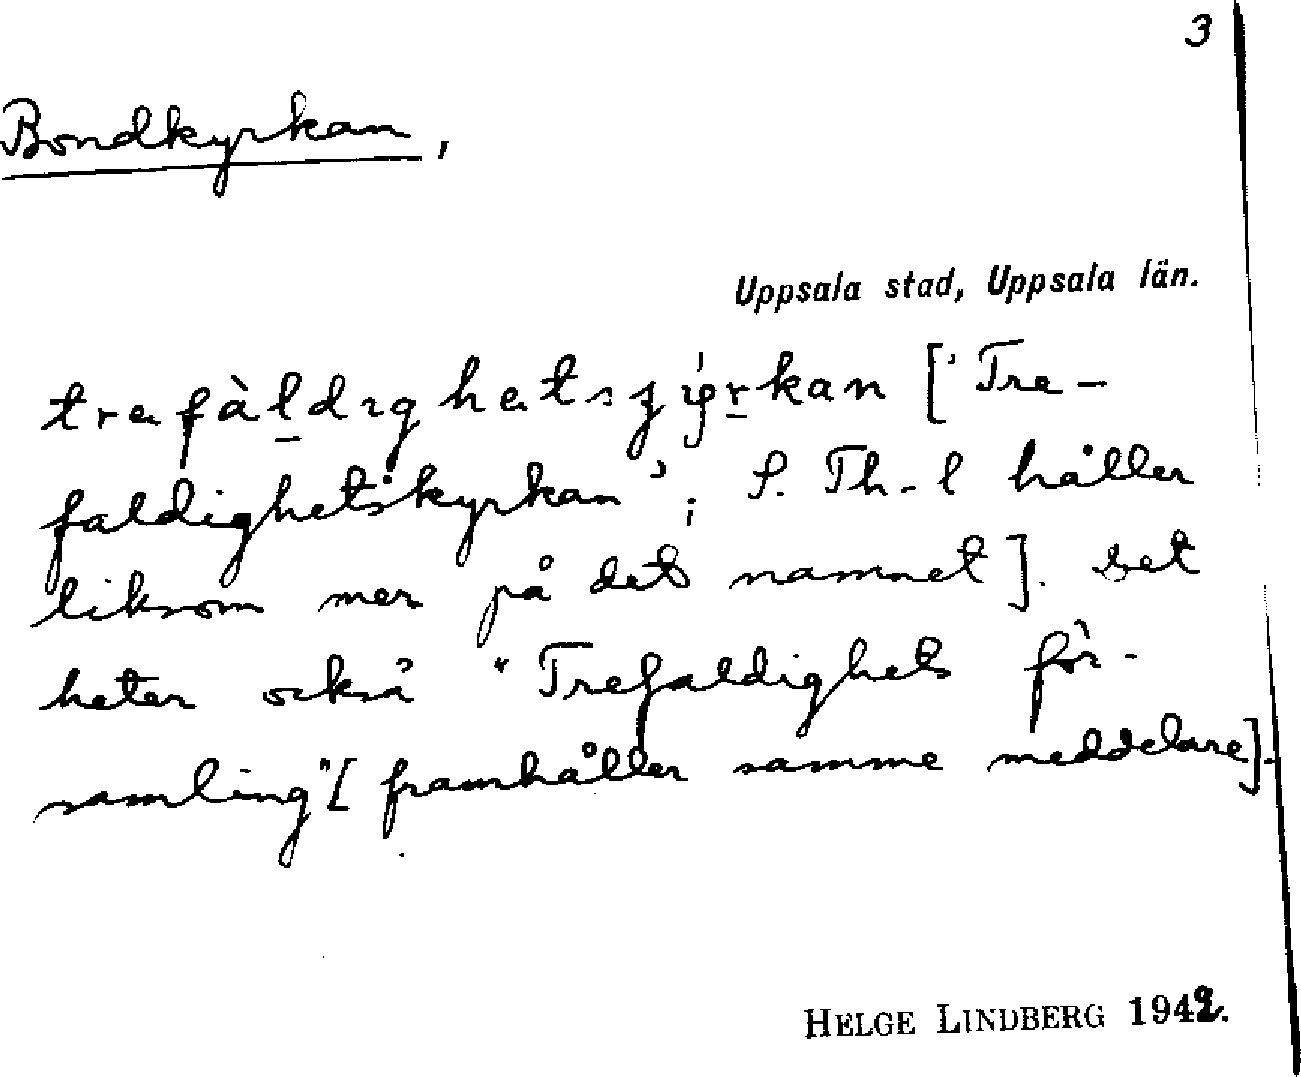 3
Bondkyrkan,
Uppsala stad, Uppsala län.
['Tre-
faldighetskyrkan'; S. Th-l håller
liksom mer på det namnet]. Det
heter också "Trefaldighets för-
samling" [framhåller samme meddelare].
HELGE LINDBERG 1942.